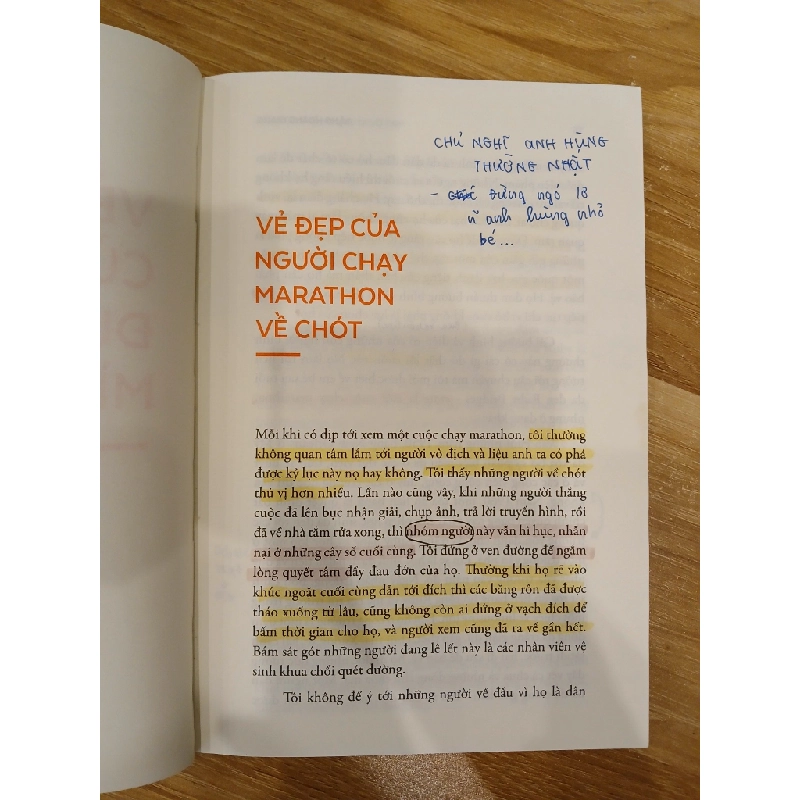 CHỦ NGHĨ ANH HÙNG
THƯỜNG NHẬT
- đừng ngó lơ
vì anh hùng nhỏ
bé...
VẺ ĐẸP CỦA
NGƯỜI CHẠY
MARATHON
VỀ CHÓT
Mỗi khi có dịp tới xem một cuộc chạy marathon, tôi thường
không quan tâm lắm tới người vô địch và liệu anh ta có phá
được kỷ lục này nọ hay không. Tôi thấy những người về chót
thú vị hơn nhiều. Lần nào cũng vậy, khi những người thắng
cuộc đã lên bục nhận giải, chụp ảnh, trả lời truyền hình, rồi
đã về nhà tắm rửa xong, thì nhóm người này vẫn hì hục, nhẫn
nại ở những cây số cuối cùng. Tôi đứng ở ven đường để ngắm
lòng quyết tâm đầy đau đớn của họ. Thường khi họ rẽ vào
khúc ngoặt cuối cùng dẫn tới đích thì các băng rôn đã được
tháo xuống từ lâu, cũng không còn ai đứng ở vạch đích để
bấm thời gian cho họ, và người xem cũng đã ra về gần hết.
Bám sát gót những người đang lê lết này là các nhân viên vệ
sinh khua chổi quét đường.
Tôi không để ý tới những người về đầu vì họ là dân